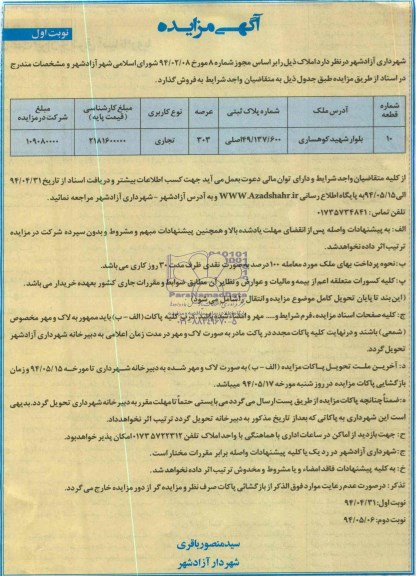 آگهی مزایده
نوبت اول
شهرداری آزادشهر در نظر دارد املاک ذیل را بر اساس مجوز شماره ۸ مورخ ۹۴/۰۲/۰۸ شورای اسلامی شهر آزادشهر و مشخصات مندرج
در اسناد از طریق مزایده طبق جدول ذیل به متقاضیان واجد شرایط به فروش گذارد.
شماره قطعه	آدرس ملک	شماره پلاک ثبتی	عرصه	نوع کاربری	مبلغ کارشناسی (قیمت پایه)	مبلغ شرکت در مزایده
۱۰	بلوار شهید کوهساری	۴۹/۱۳۷/۶۰۰اصلی	۳۰۳	تجاری	۲۱۸۱۶۰۰۰۰۰	۱۰۹۰۸۰۰۰۰
از کلیه متقاضیان واجد شرایط و دارای توان مالی دعوت بعمل می آید جهت کسب اطلاعات بیشتر و دریافت اسناد از تاریخ ۹۴/۰۴/۳۱
الی ۹۴/۰۵/۱۵ به پایگاه اطلاع رسانی WWW.Azadshahr.ir و به آدرس آزادشهر - شهرداری آزادشهر مراجعه نمائید.
تلفن تماس: ۰۱۷۳۵۷۳۴۸۴۱
الف: به پیشنهادات واصله پس از انقضای مهلت یادشده بالا و همچنین پیشنهادات مبهم و مشروط و بدون سپرده شرکت در مزایده
ترتیب اثر داده نخواهد شد.
ب: نحوه پرداخت بهای ملک مورد معامله ۱۰۰ درصد به صورت نقدی ظرف مدت ۳۰ روز کاری می باشد.
پ: کلیه کسورات متعلقه اعم از بیمه و مالیات و عوارض و نظایر آن مطابق ضوابط و مقررات جاری کشور بعهده خریدار می باشد.
(این بند تا پایان تحویل کامل موضوع مزایده و انتقال را شامل می شود)
ج: کلیه صفحات اسناد مزایده، فرم شرایط و... مهر و امضاء شده باشند کلیه پاکات (الف - ب) باید ممهور به لاک و مهر مخصوص
(شمعی) باشند و در نهایت کلیه پاکات مجدد در پاکت مادر به صورت لاک و مهر در مدت زمان اعلامی به دبیرخانه شهرداری آزادشهر
تحویل گردد.
د: آخرین مهلت تحویل پاکات مزایده (الف - ب) به صورت لاک و مهر شده به دبیرخانه شهرداری تا مورخه ۹۴/۰۵/۱۵ و زمان
بازگشایی پاکات مزایده در روز شنبه مورخه ۹۴/۰۵/۱۷ میباشد.
ه: ضمناً چنانچه پاکات مزایده از طریق پست ارسال می گردد می بایستی حتماً تا مهلت مقرر به دبیرخانه شهرداری تحویل گردد. بدیهی
است این شهرداری به پاکاتی که بعد از تاریخ مذکور به دبیرخانه تحویل گردد ترتیب اثر نخواهد داد.
ح: جهت بازدید از اماکن در ساعات اداری با هماهنگی با واحد املاک تلفن ۰۱۷۳۵۷۲۲۳۱۲ امکان پذیر خواهد بود.
چ: شهرداری آزادشهر در رد یک یا کلیه پیشنهادات واصله برابر مقررات مختار است.
خ: به کلیه پیشنهادات فاقد امضاء و یا مشروط و مخدوش ترتیب اثر داده نخواهد شد.
تذکر: در صورت عدم رعایت موارد فوق الذکر از بازگشائی پاکات صرف نظر و مزایده گر از دور مزایده خارج می گردد.
نوبت اول: ۹۴/۰۴/۳۱
نوبت دوم: ۹۴/۰۵/۰۶
سید منصور باقری
شهردار آزادشهر